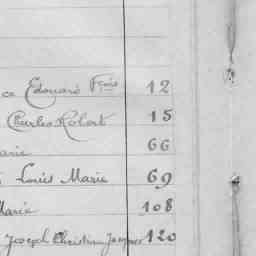 ce Edouard Frois 12
Charles Robert 15
arie 66
Louis Marie 69
Marie 108
Joseph Christian Jacques 120